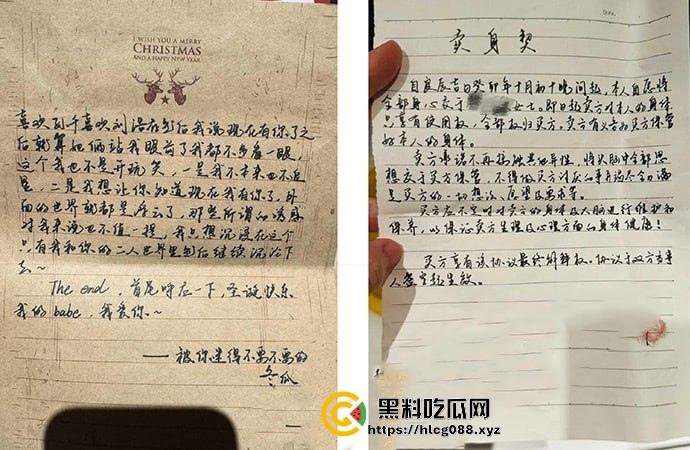 I WISH YOU A MERRY
CHRISTMAS
AND A HAPPY NEW YEAR
喜欢千喜欢刘浩存到后我说现在有你了之
后就算她俩站我眼前了我都不多看一眼,
这个我也不是开玩笑,一是我本来也不追
星,二是我想让你知道现在我有你了,外
面的世界就都是浮云了,那些所谓的诱惑
对我来说也不值一提,我只想沉浸在这个
只有我和你的二人世界里到后继续沉沦下
去~
The end,首尾呼应一下,圣诞快乐
我的babe,我爱你~
——被你迷得不要不要的
冬瓜
卖身契
自良辰吉日癸卯年十月初十晚间起,本人自愿将
全部身心交于 女士。即日起卖方对本人的身体
只享有使用权,全部权归买方。卖方有义务为买方保管
好本人的身体。
卖方承诺不再接触其他异性,将大脑中全部思
想交于买方保管,不得做买方讨厌的事并竭尽全力满
足买方的一切想法、愿望及要求等。
买方应不定时对卖方的身体及大脑进行维护和
保养,以保证卖方生理及心理方面的身体健康!
买方享有该协议最终解释权。协议于双方当事
人签字起生效。
黑料吃瓜网
https://hlcg088.xyz